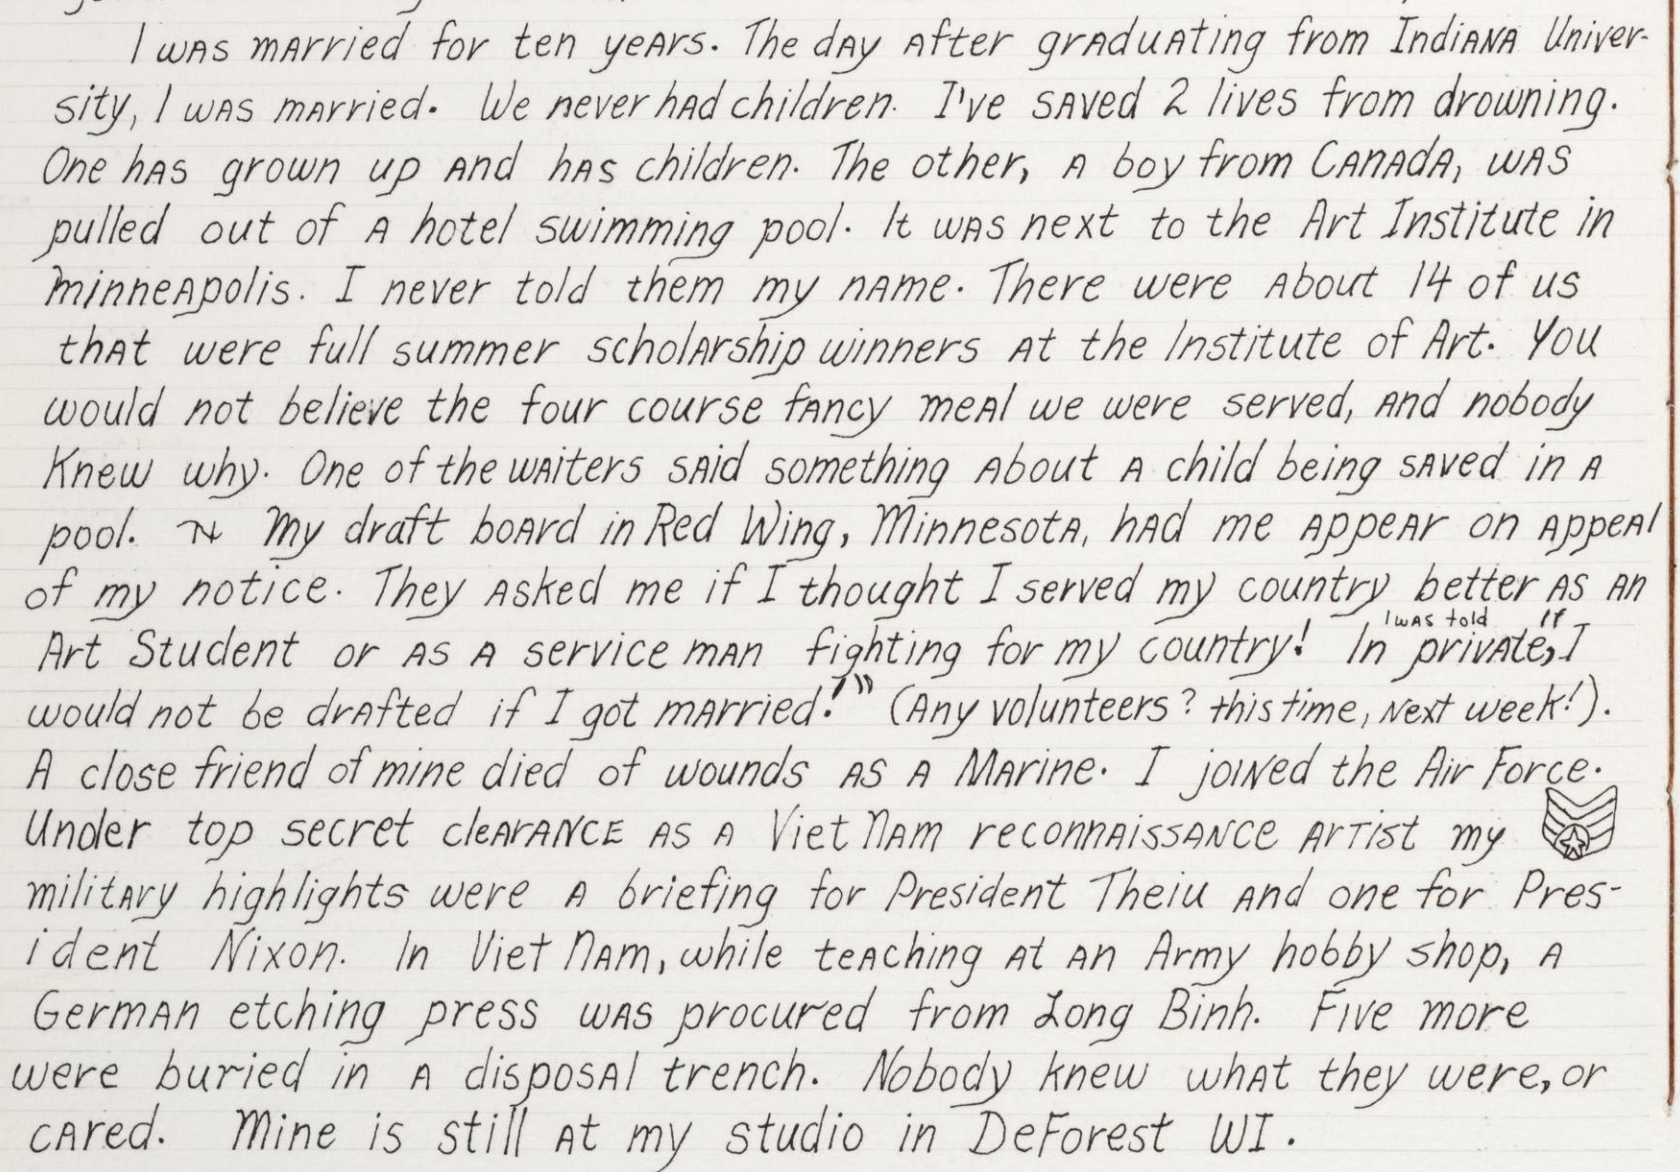 I was married for ten years. The day after graduating from Indiana Univer-
sity, I was married. We never had children. I've saved 2 lives from drowning.
One has grown up and has children. The other, a boy from Canada, was
pulled out of a hotel swimming pool. It was next to the Art Institute in
Minneapolis. I never told them my name. There were about 14 of us
that were full summer scholarship winners at the Institute of Art. You
would not believe the four course fancy meal we were served, and nobody
knew why. One of the waiters said something about a child being saved in a
pool. My draft board in Red Wing, Minnesota, had me appear on appeal
of my notice. They asked me if I thought I served my country better as an
I was told "If
Art Student or as a service man fighting for my country! In private, I
would not be drafted if I got married!" (Any volunteers? this time, next week!).
A close friend of mine died of wounds as a Marine. I joined the Air Force.
Under top secret clearance as a Viet Nam reconnaissance artist my
military highlights were a briefing for President Theiu and one for Pres-
ident Nixon. In Viet Nam, while teaching at an Army hobby shop, a
German etching press was procured from Long Binh. Five more
were buried in a disposal trench. Nobody knew what they were, or
cared. Mine is still at my studio in DeForest WI.